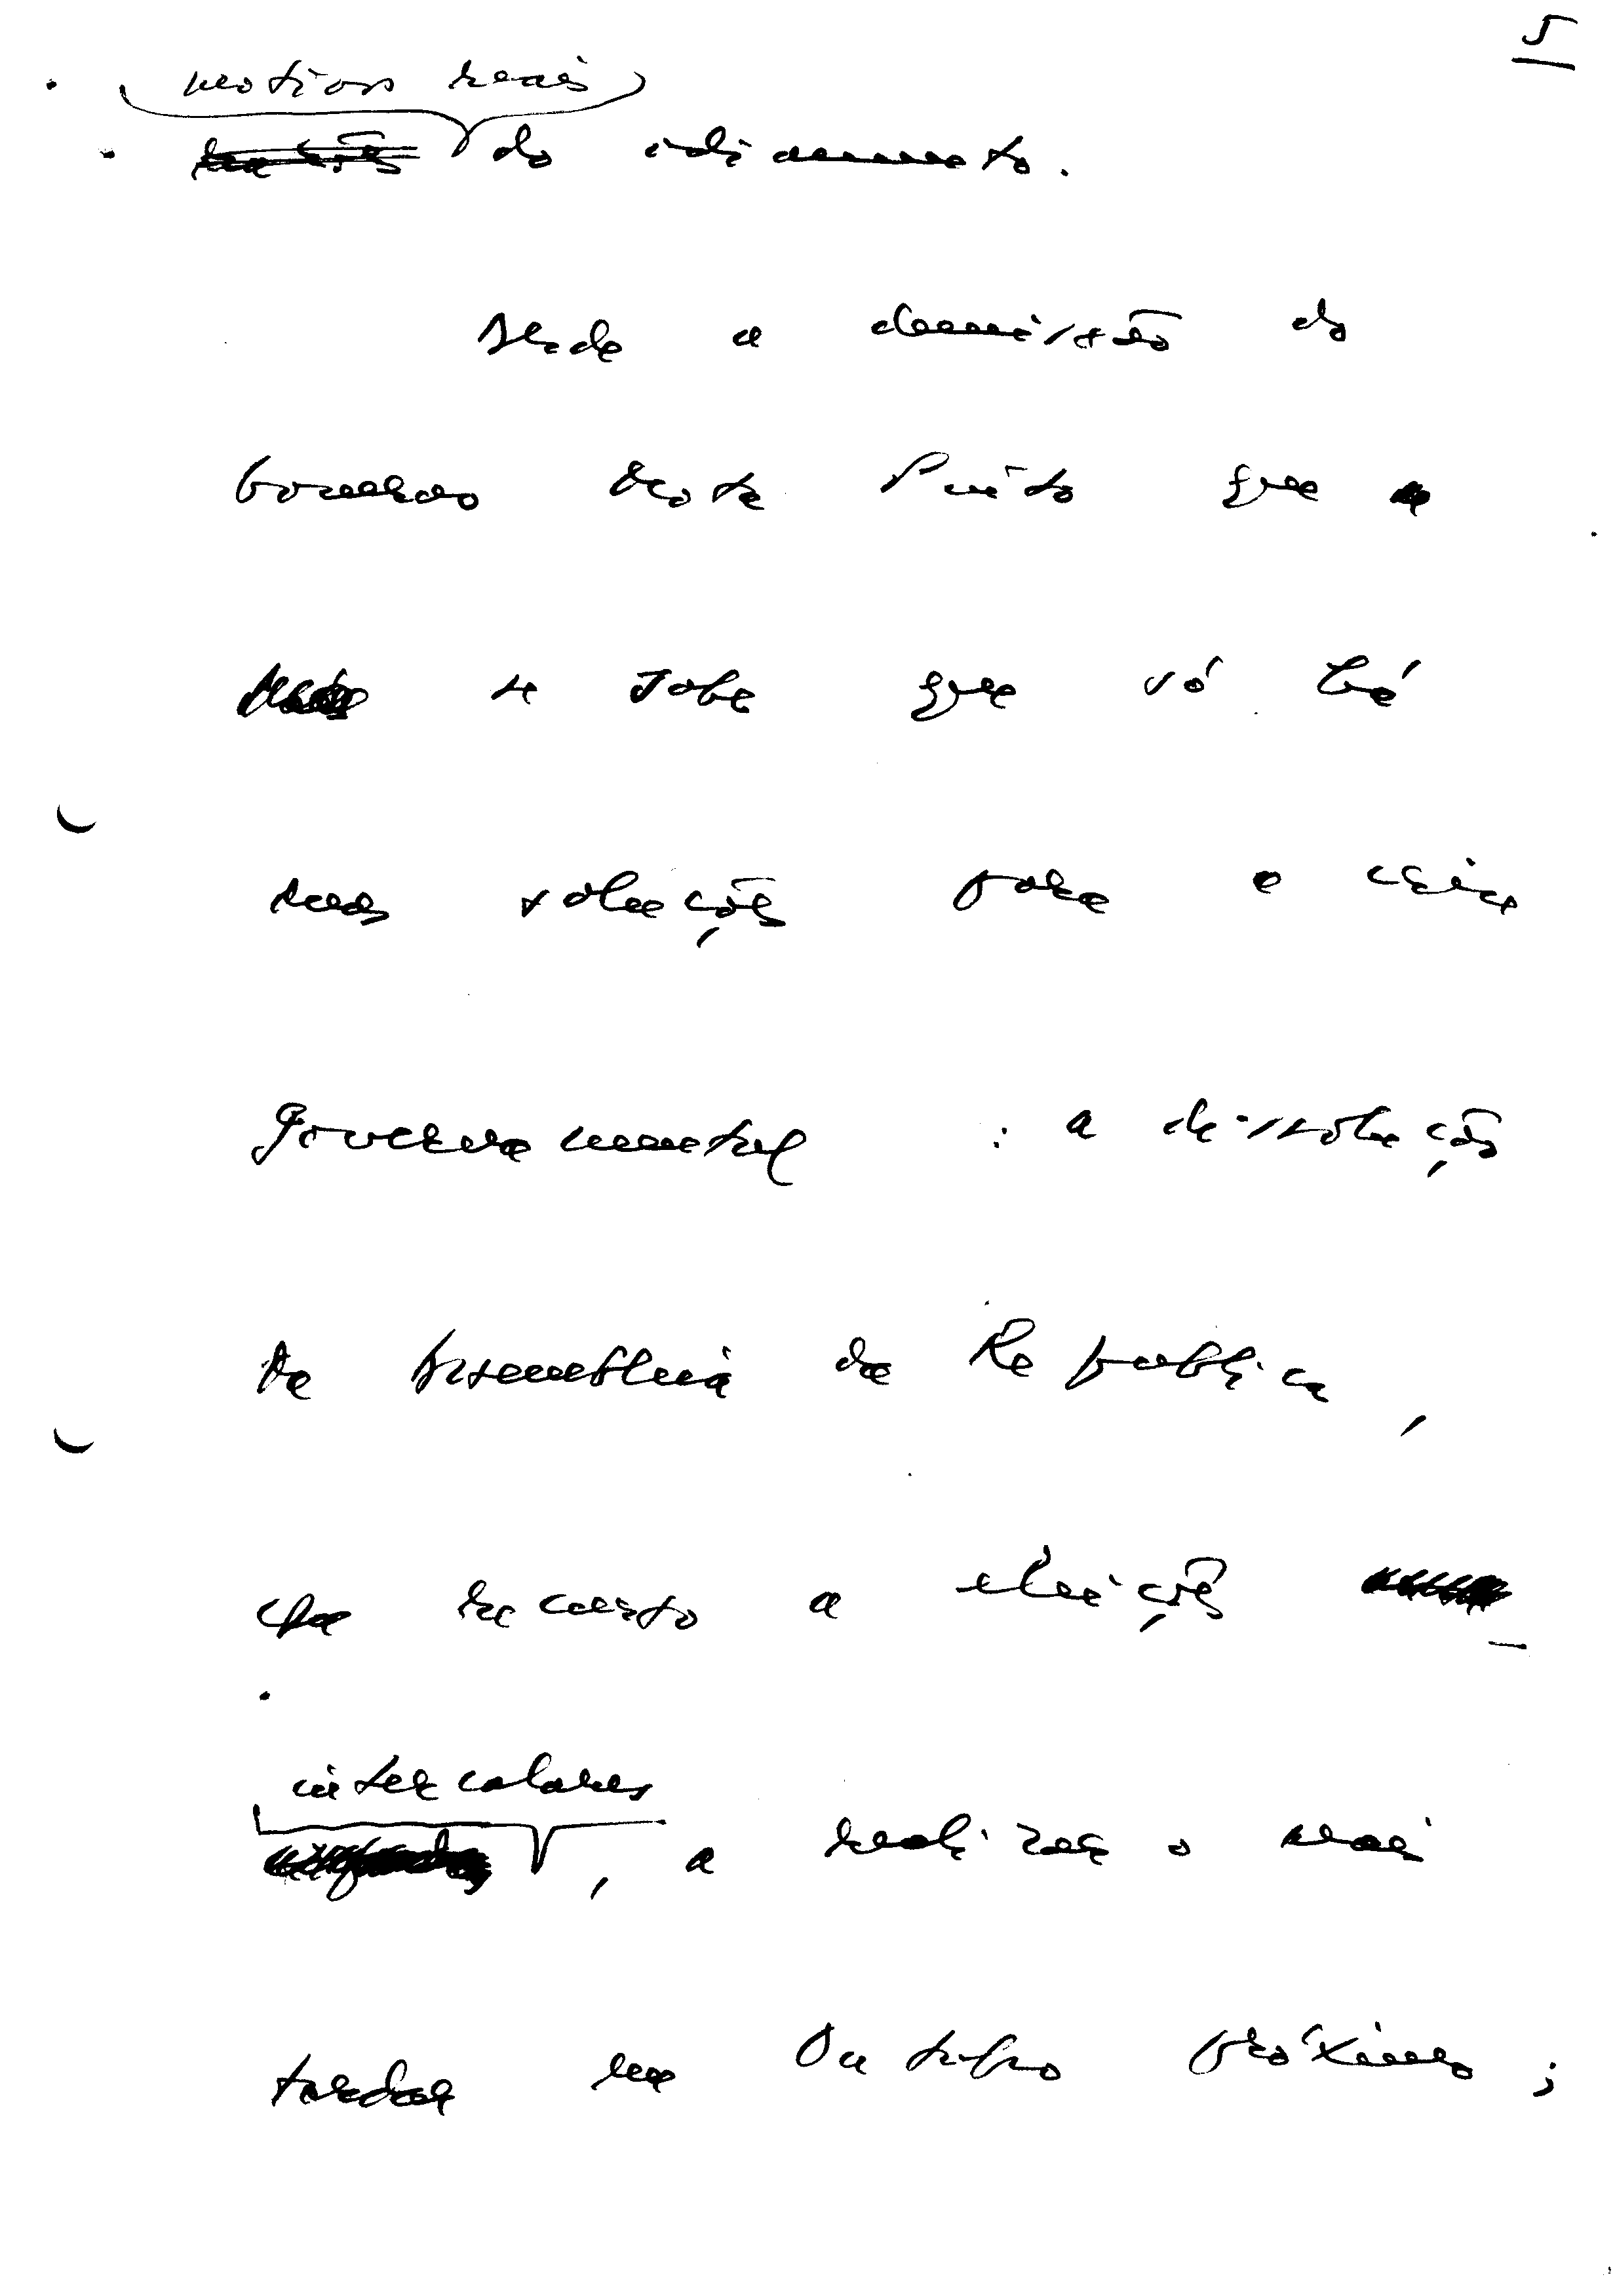 5
motivos reais
razões do adiamento.
Desde a demissão do
Governo Mota Pinto que
se sabe que só há
duas soluções para a crise
governamental : a dissolução
da Assembleia da República,
com recurso a eleições
intercalares, a realizar o mais
tardar em Outubro próximo ;